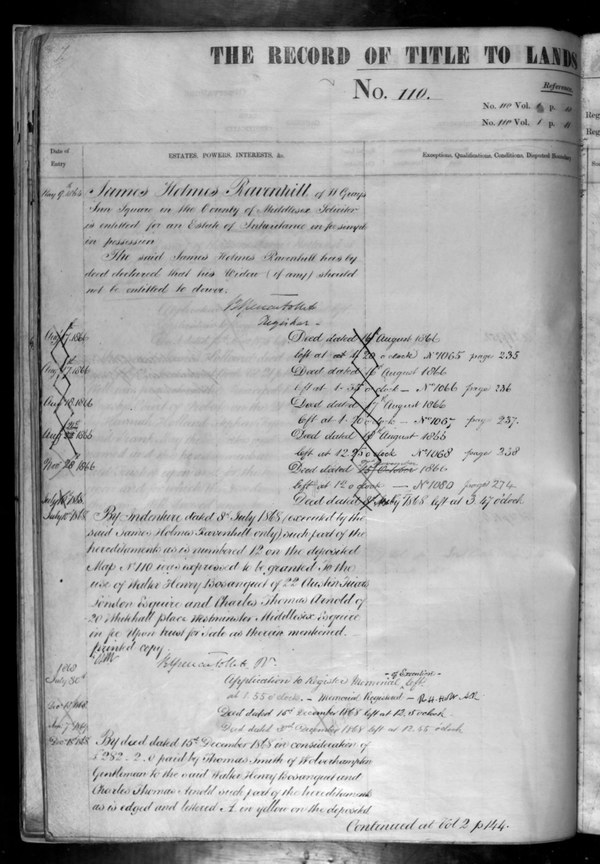 THE RECORD OF TITLE TO LANDS
No. 110.
Reference
No. 110 Vol. p. 10
No. 110 Vol. 1 p.
Date of Entry
ESTATES, POWERS, INTERESTS, &c.
Exceptions, Qualifications, Conditions, Disputed Boundary
James Holmes Ravenhill of 11 Grays
Inn Square in the County of Middlesex Solicitor
is entitled for an Estate of Inheritance in fee simple
in possession
The said James Holmes Ravenhill has by
deed declared that his Widow (if any) should
not be entitled to dower.
Registrar
Aug 17 1866
Deed dated 16th August 1866
left at 1.20 o'clock No 1065 page 235
Aug 17th 1866
Deed dated 16th August 1866
left at 1.35 o'clock - No 1066 page 236
Aug 18 1866
Deed dated 17th August 1866
left at 1. o'clock - No 1067 page 237.
Aug 22 1866
Deed dated August 1866
left at 12.25 o'clock No 1068 page 238
Nov 28 1866
Deed dated 25 October 1866
left at 12 o'clock — No 1080 page 274
July 1868
Deed dated July 1868 left at 3.47 o'clock
July 10th 1868
By Indenture dated 3d July 1868 (executed by the
said James Holmes Ravenhill only) such part of the
hereditaments as is numbered 12 on the deposited
Map No 110 was expressed to be granted To the
use of Walter Henry Bosanquet of 22 Austin Friars
London Esquire and Charles Thomas Arnold of
20 Whitehall place Westminster Middlesex Esquire
in fee Upon trust for Sale as therein mentioned.
printed copy
Application to Register Memorial of Execution left
at 1.55 o'clock. - Memorial Registered -
Deed dated 15th December 1868 left at 12.5 o'clock
Deed dated December 1868 left at 12.55 o'clock
Dec 18th 1868
By deed dated 15th December 1868 in consideration of
£282.2.0 paid by Thomas Smith of Wolverhampton
Gentleman to the said Walter Henry Bosanquet and
Charles Thomas Arnold such part of the hereditaments
as is edged and lettered A in yellow on the deposited
Continued at Vol 2 p 144.